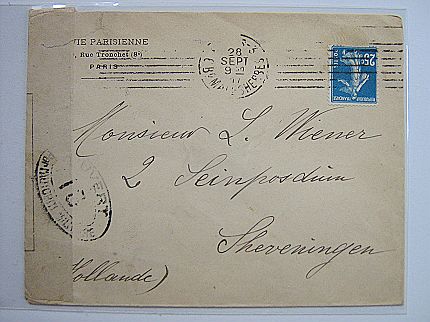 VIE PARISIENNE
Rue Tronchet (8e)
PARIS
28
SEPT
9
Monsieur L. Wiener
2 Seinposduin
Sheveningen
(Hollande)
OUVERT